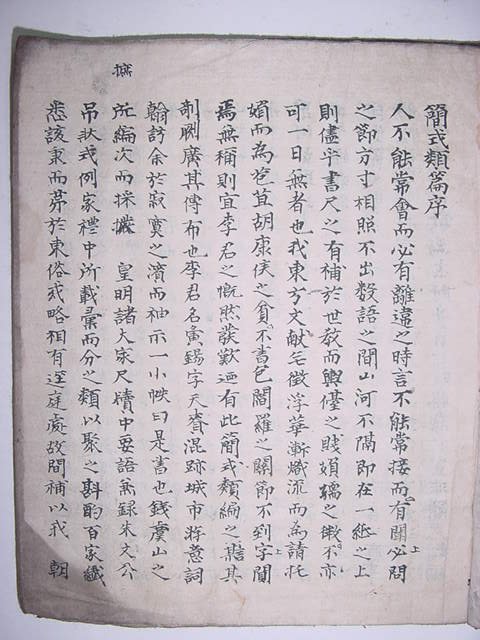 簡式類篇序
人不能常會而必有離違之時言不能常接而有関必問
之節方寸相照不出數語之間山河不隔即在一紙之上
則儘乎書尺之有補於世敎而輿儓之賤媍孺之微不亦
可一日無者也我東方文献乞徵浮華漸熾流而為請托
媚而為苞苴胡康侯之貧不書包閻羅之關節不到字閴
焉無稱則宜李君之慨然發歎迺有此簡式類編之
剞劂廣其傳布也李君名寅錫字天賚混跡城市游意詞
翰訪余於寂寞之濱而袖示一小帙曰是書也錢虞山之
所編次而採攗 皇明諸大家尺牘中要語無録朱文公
吊狀式例家禮中所載彙而分之類以聚之斟酌百家纖
悉該
東而第於東俗或略相有逕庭處故間補以我 朝
摭